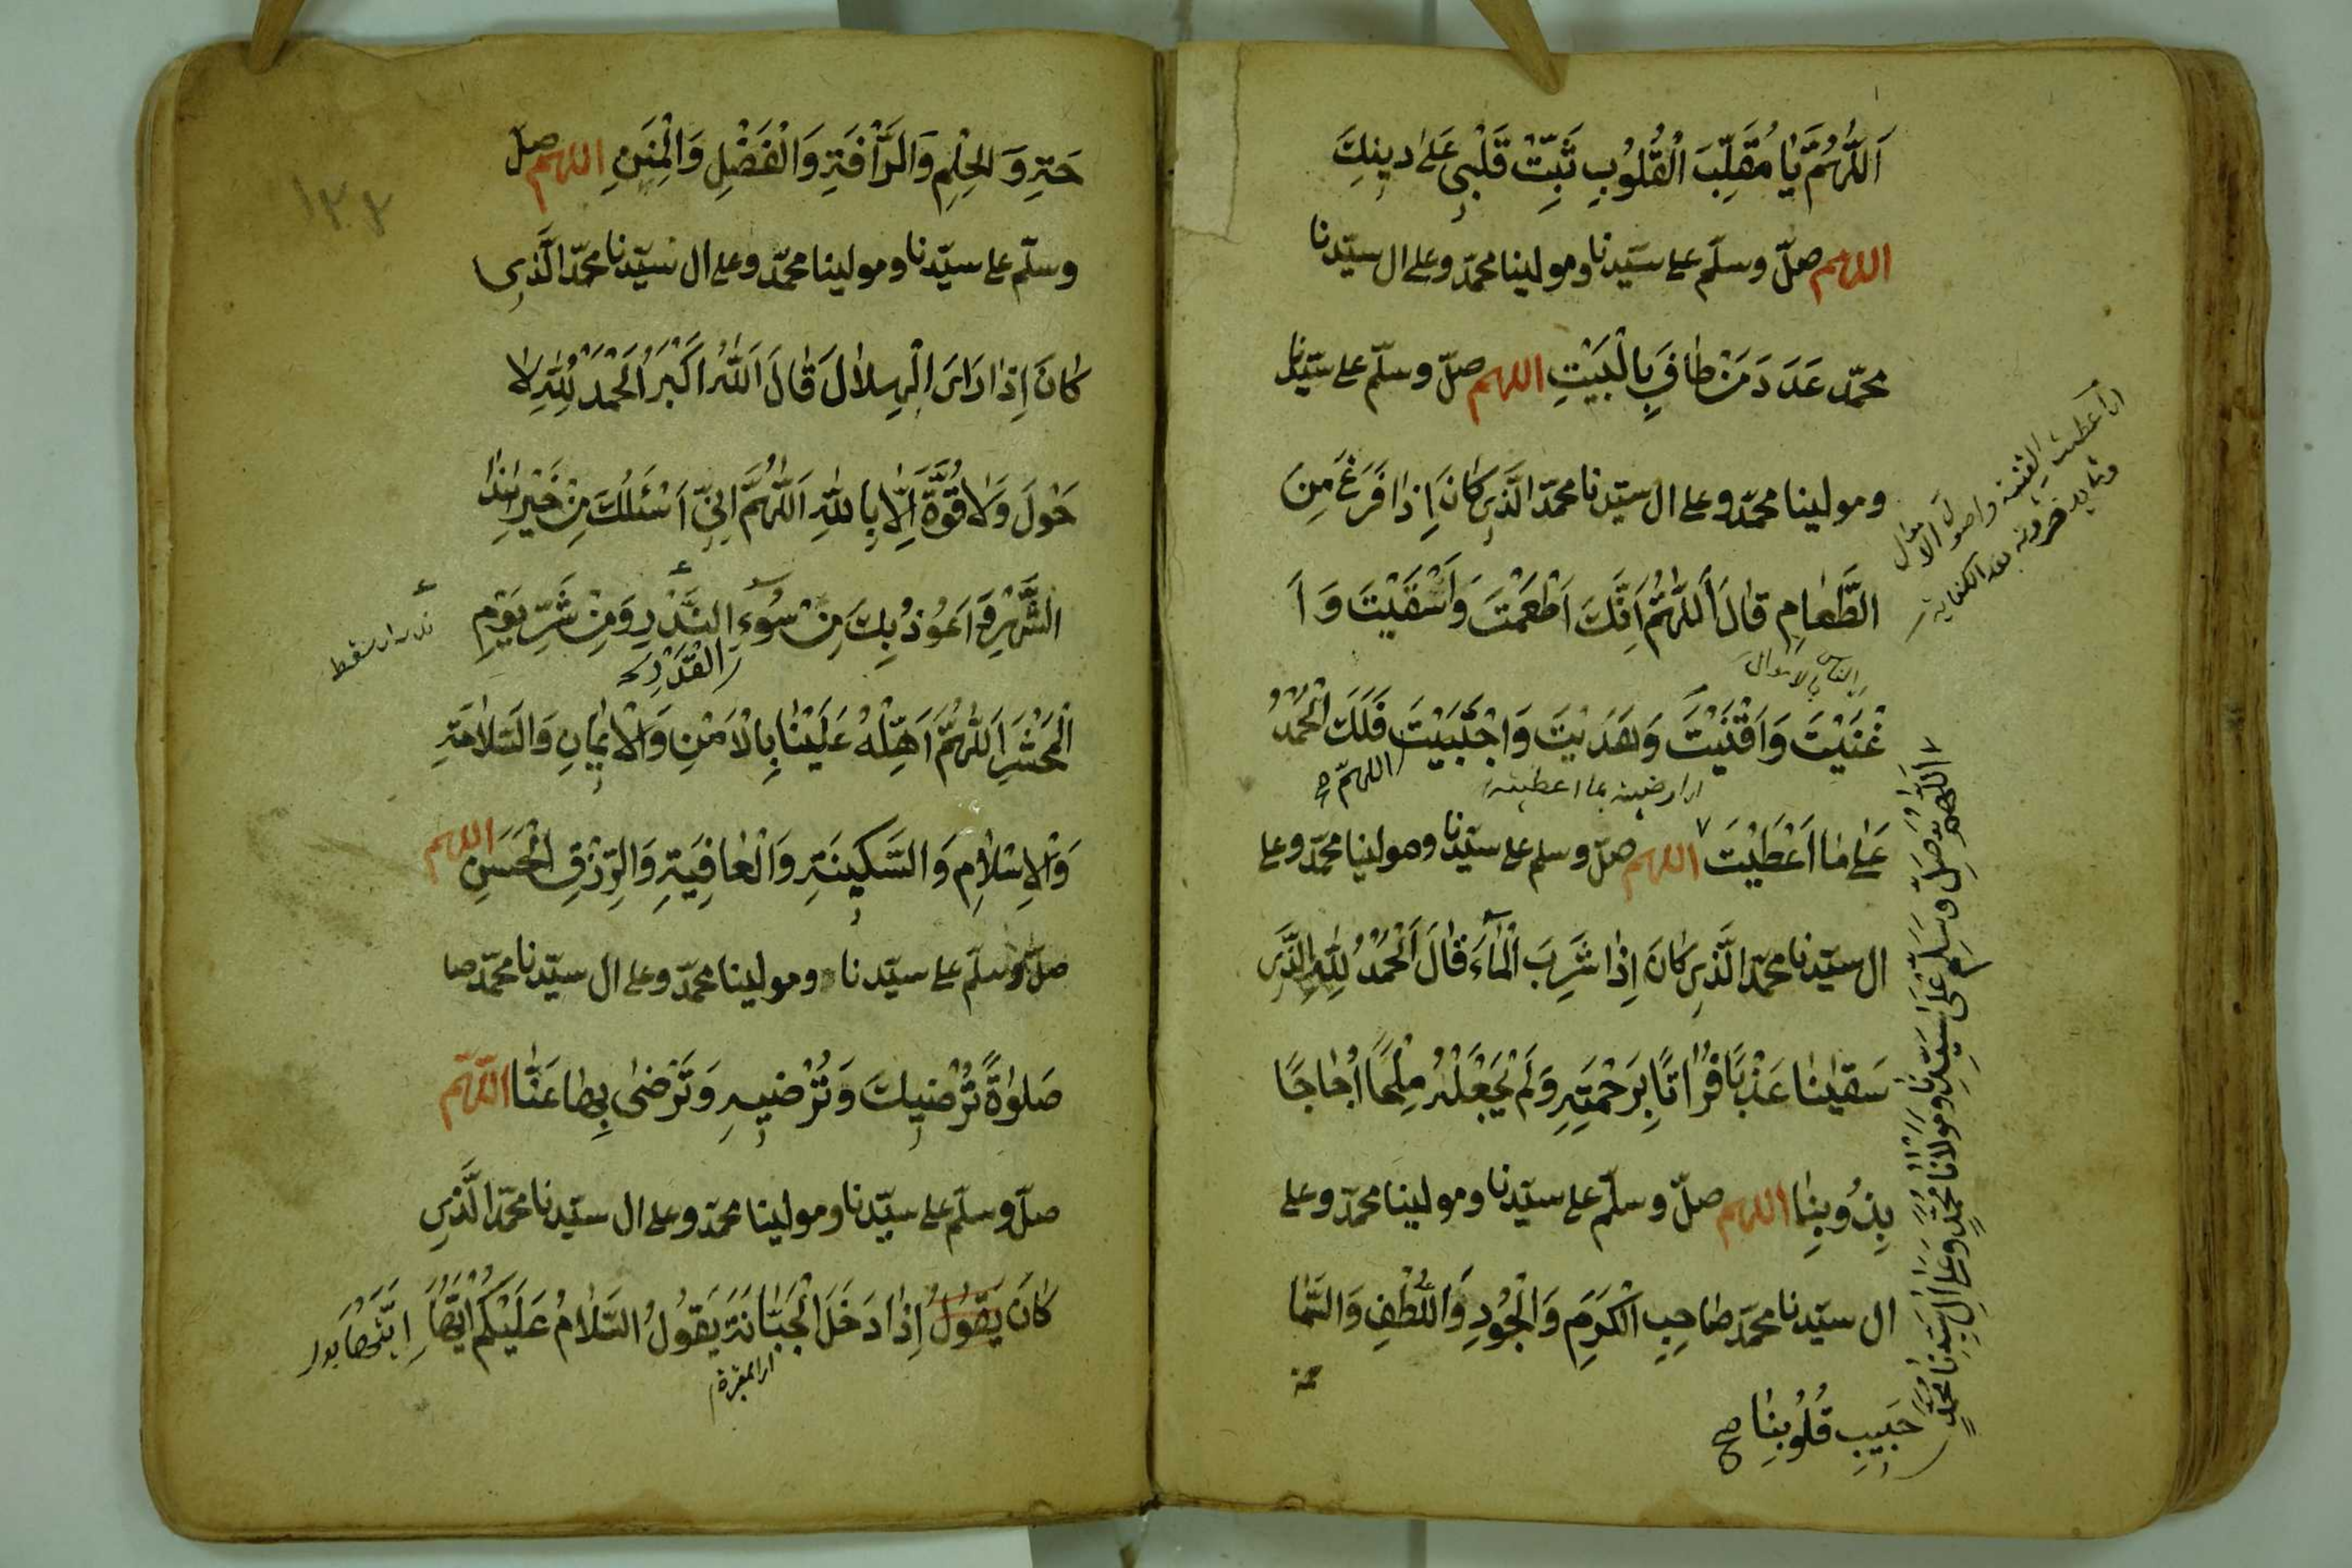 اَللّٰهُمَّ يَا مُقَلِّبَ الْقُلُوُبِ ثَبِّتْ قَلْبِي عَلٰى دِينِكَ
اللهم صلّ وسلّم على سيّدنا ومولينا محمّد وعلى ال سيّدنا
محمّد عَدَدَ مَنْ طَافَ بِالْبَيْتِ اللهم صلّ وسلّم على سيّدنا
ومولينا محمّد وعلى ال سيّدنا محمّد الَّذِي كَانَ اِذَا فَرَغَ مِنَ
الطَّعَامِ قَالَ اَللّٰهُمَّ اِنَّكَ اَطْعَمْتَ وَاَسْقَيْتَ وَ اَ
بالاموال
غْنَيْتَ وَاَقْنَيْتَ وَهَدَيْتَ وَاجْتَبَيْتَ فَلَكَ الْحَمْدُ
بما اعطيته
اللهمّ صح
عَلٰى مَا اَعْطَيْتَ اللهم صلّ وسلم على سيّدنا ومولينا محمّد وعلى
ال سيّدنا محمّد الَّذِي كَانَ اِذَا شَرِبَ الْمَآءَ قَالَ اَلْحَمْدُ لِلّٰهِ الَّذِي
سَقَيٰنَا عَذْبًا فُرَاتًا بِرَحْمَتِهِ وَلَمْ يَجْعَلْهُ مِلْحًا اُجَاجًا
بِذُنُوبِنَا اللهم صلّ وسلّم على سيّدنا ومولينا محمّد وعلى
ال سيّدنا محمّد صَاحِبِ الْكَرَمِ وَالْجُودِ وَاللُّطْفِ وَالسَّمَا
حة
اَللّٰهُمَّ صَلِّ وَسَلِّمْ عَلٰى سَيِّدِنَا وَمَوْلَانَا مُحَمَّدٍ وَعَلٰى اٰلِ سَيِّدِنَا مُحَمَّدٍ
حَبِيبِ قُلُوُبِنَا صح
واصول الاموال
١٣٣
حَةِ وَالْحِلْمِ وَالرَّأْفَةِ وَالْفَضْلِ وَالْمِنَنِ اللهم صلّ
وسلّم على سيّدنا ومولينا محمّد وعلى ال سيّدنا محمّد الَّذِي
كَانَ اِذَا رَاَى الْهِلَالَ قَالَ اَللّٰهُ اَكْبَرُ اَلْحَمْدُ لِلّٰهِ لَا
حَوْلَ وَلَا قُوَّةَ اِلَّا بِاللّٰهِ اَللّٰهُمَّ اِنِّي اَسْئَلُكَ مِنْ خَيْرِ هٰذَا
الشَّهْرِ وَ اَعُوذُ بِكَ مِنْ سُوءِ النَّذْرِ وَمِنْ شَرِّ يَوْمِ
الْقَدَرِ
الْمَحْشَرِ اَللّٰهُمَّ اَهِلَّهُ عَلَيْنَا بِالْاَمْنِ وَالْاِيمَانِ وَالسَّلَامَةِ
وَالْاِسْلَامِ وَالسَّكِينَةِ وَالْعَافِيَةِ وَالرِّزْقِ الْحَسَنِ اللهم
صلّ وسلّم على سيّدنا ومولينا محمّد وعلى ال سيّدنا محمّد صا
صَلٰوةً تُرْضِيكَ وَتُرْضِيهِ وَتَرْضٰى بِهَا عَنَّا اللّهمّ
صلّ وسلّم على سيّدنا ومولينا محمّد وعلى ال سيّدنا محمّد الَّذِي
كَانَ يَقُولُ اِذَا دَخَلَ الْجَبَّانَةَ يَقُولُ السَّلَامُ عَلَيْكُمْ اَيَّتُهَا
المقبرة